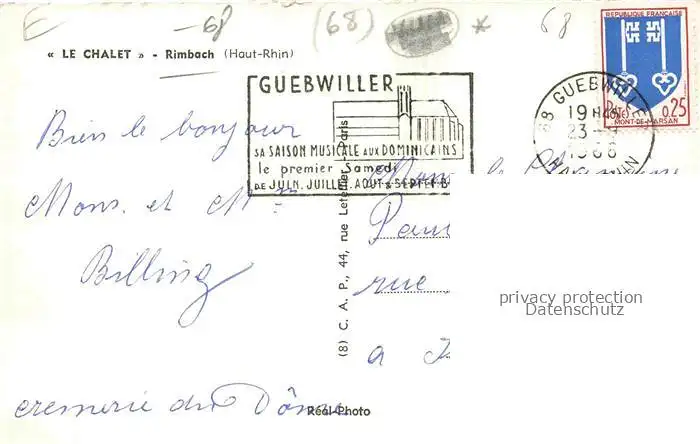 E -68 (68) * 68
« LE CHALET » - Rimbach (Haut-Rhin)
REPUBLIQUE FRANÇAISE
POSTES 0,25
MONT-DE-MARSAN
GUEBWILLER
SA SAISON MUSICALE AUX DOMINICAINS
le premier Samedi
DE JUIN. JUILLET. AOUT & SEPTEMB
68 GUEBWILLE
19 H
23 - 
1966
RHIN
Bien le bonjour
Mons. et Mme
Billing
cremerie du Dôme
(8) C. A. P., 44, rue Letellier - Paris
Réal-Photo
rue
a
privacy protection
Datenschutz